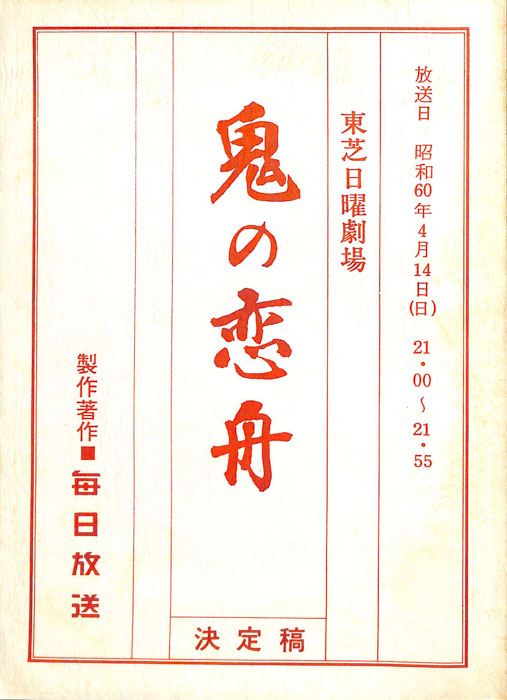 放送日 昭和60年4月14日(日) 21・00〜21・55
東芝日曜劇場
鬼の恋舟
決定稿
製作著作■毎日放送